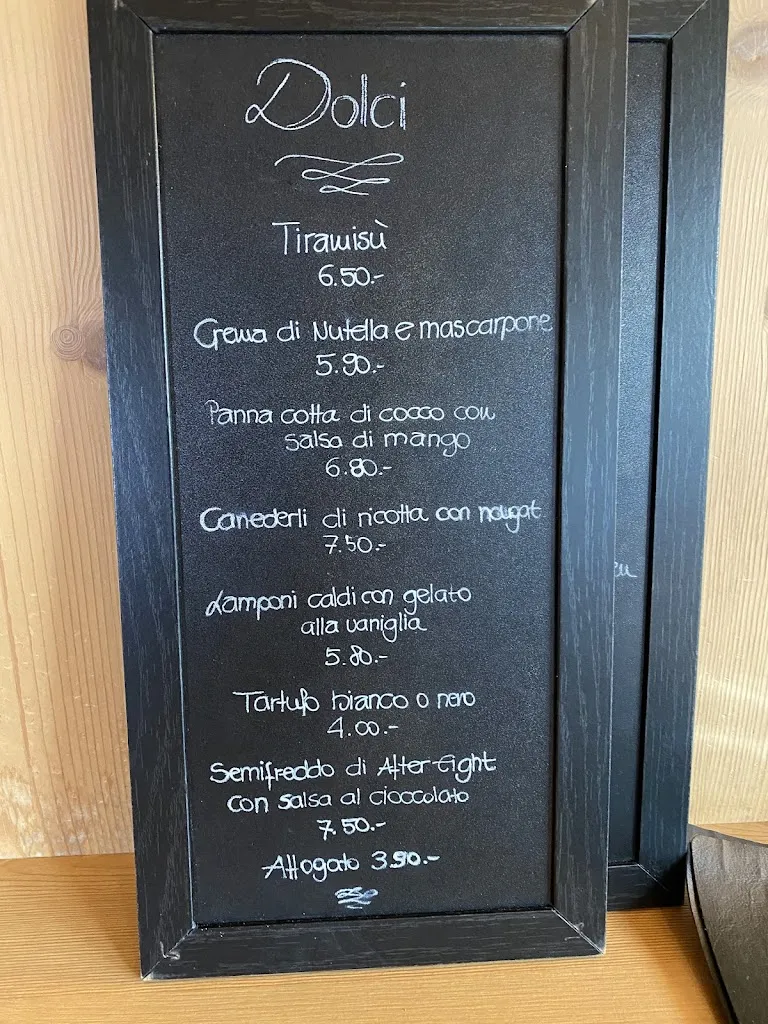 Dolci
Tiramisù
6.50.-
Crema di Nutella e mascarpone
5.90.-
Panna cotta di cocco con
salsa di mango
6.80.-
Canederli di ricotta con nougat
7.50.-
Lamponi caldi con gelato
alla vaniglia
5.80.-
Tartufo bianco o nero
4.00.-
Semifreddo di After-Eight
con salsa al cioccolato
7.50.-
Affogato 3.90.-